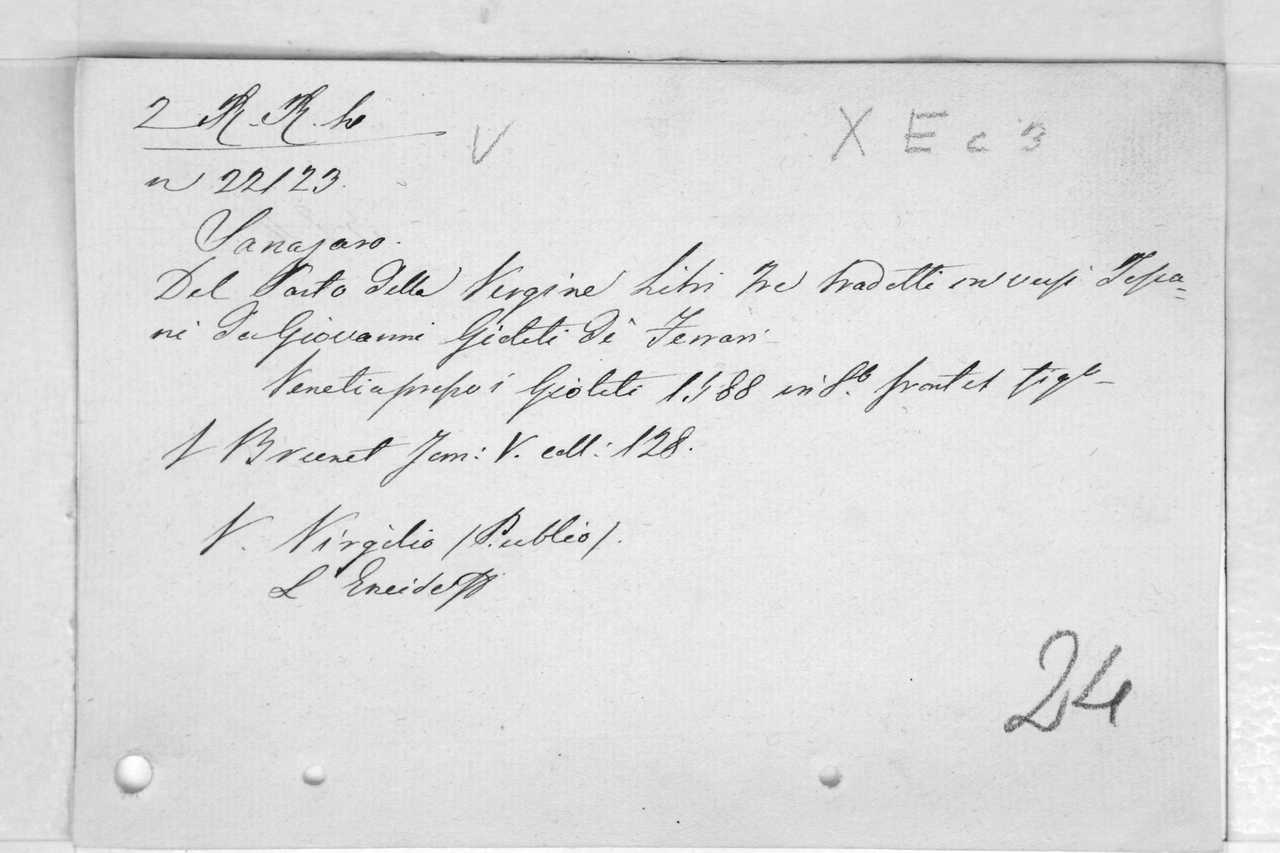 2 R. R. h
V
X E c 3
n 22/23.
Sanazaro.
Del Parto della Vergine Libri Tre tradotti in versi Tosca=
ni da Giovanni Gioliti de Ferrari
Venetia presso i Gioliti 1588 in 8º. front et fig
Brunet Tom: V. coll: 128.
V. Virgilio (Publio).
L Eneide
24